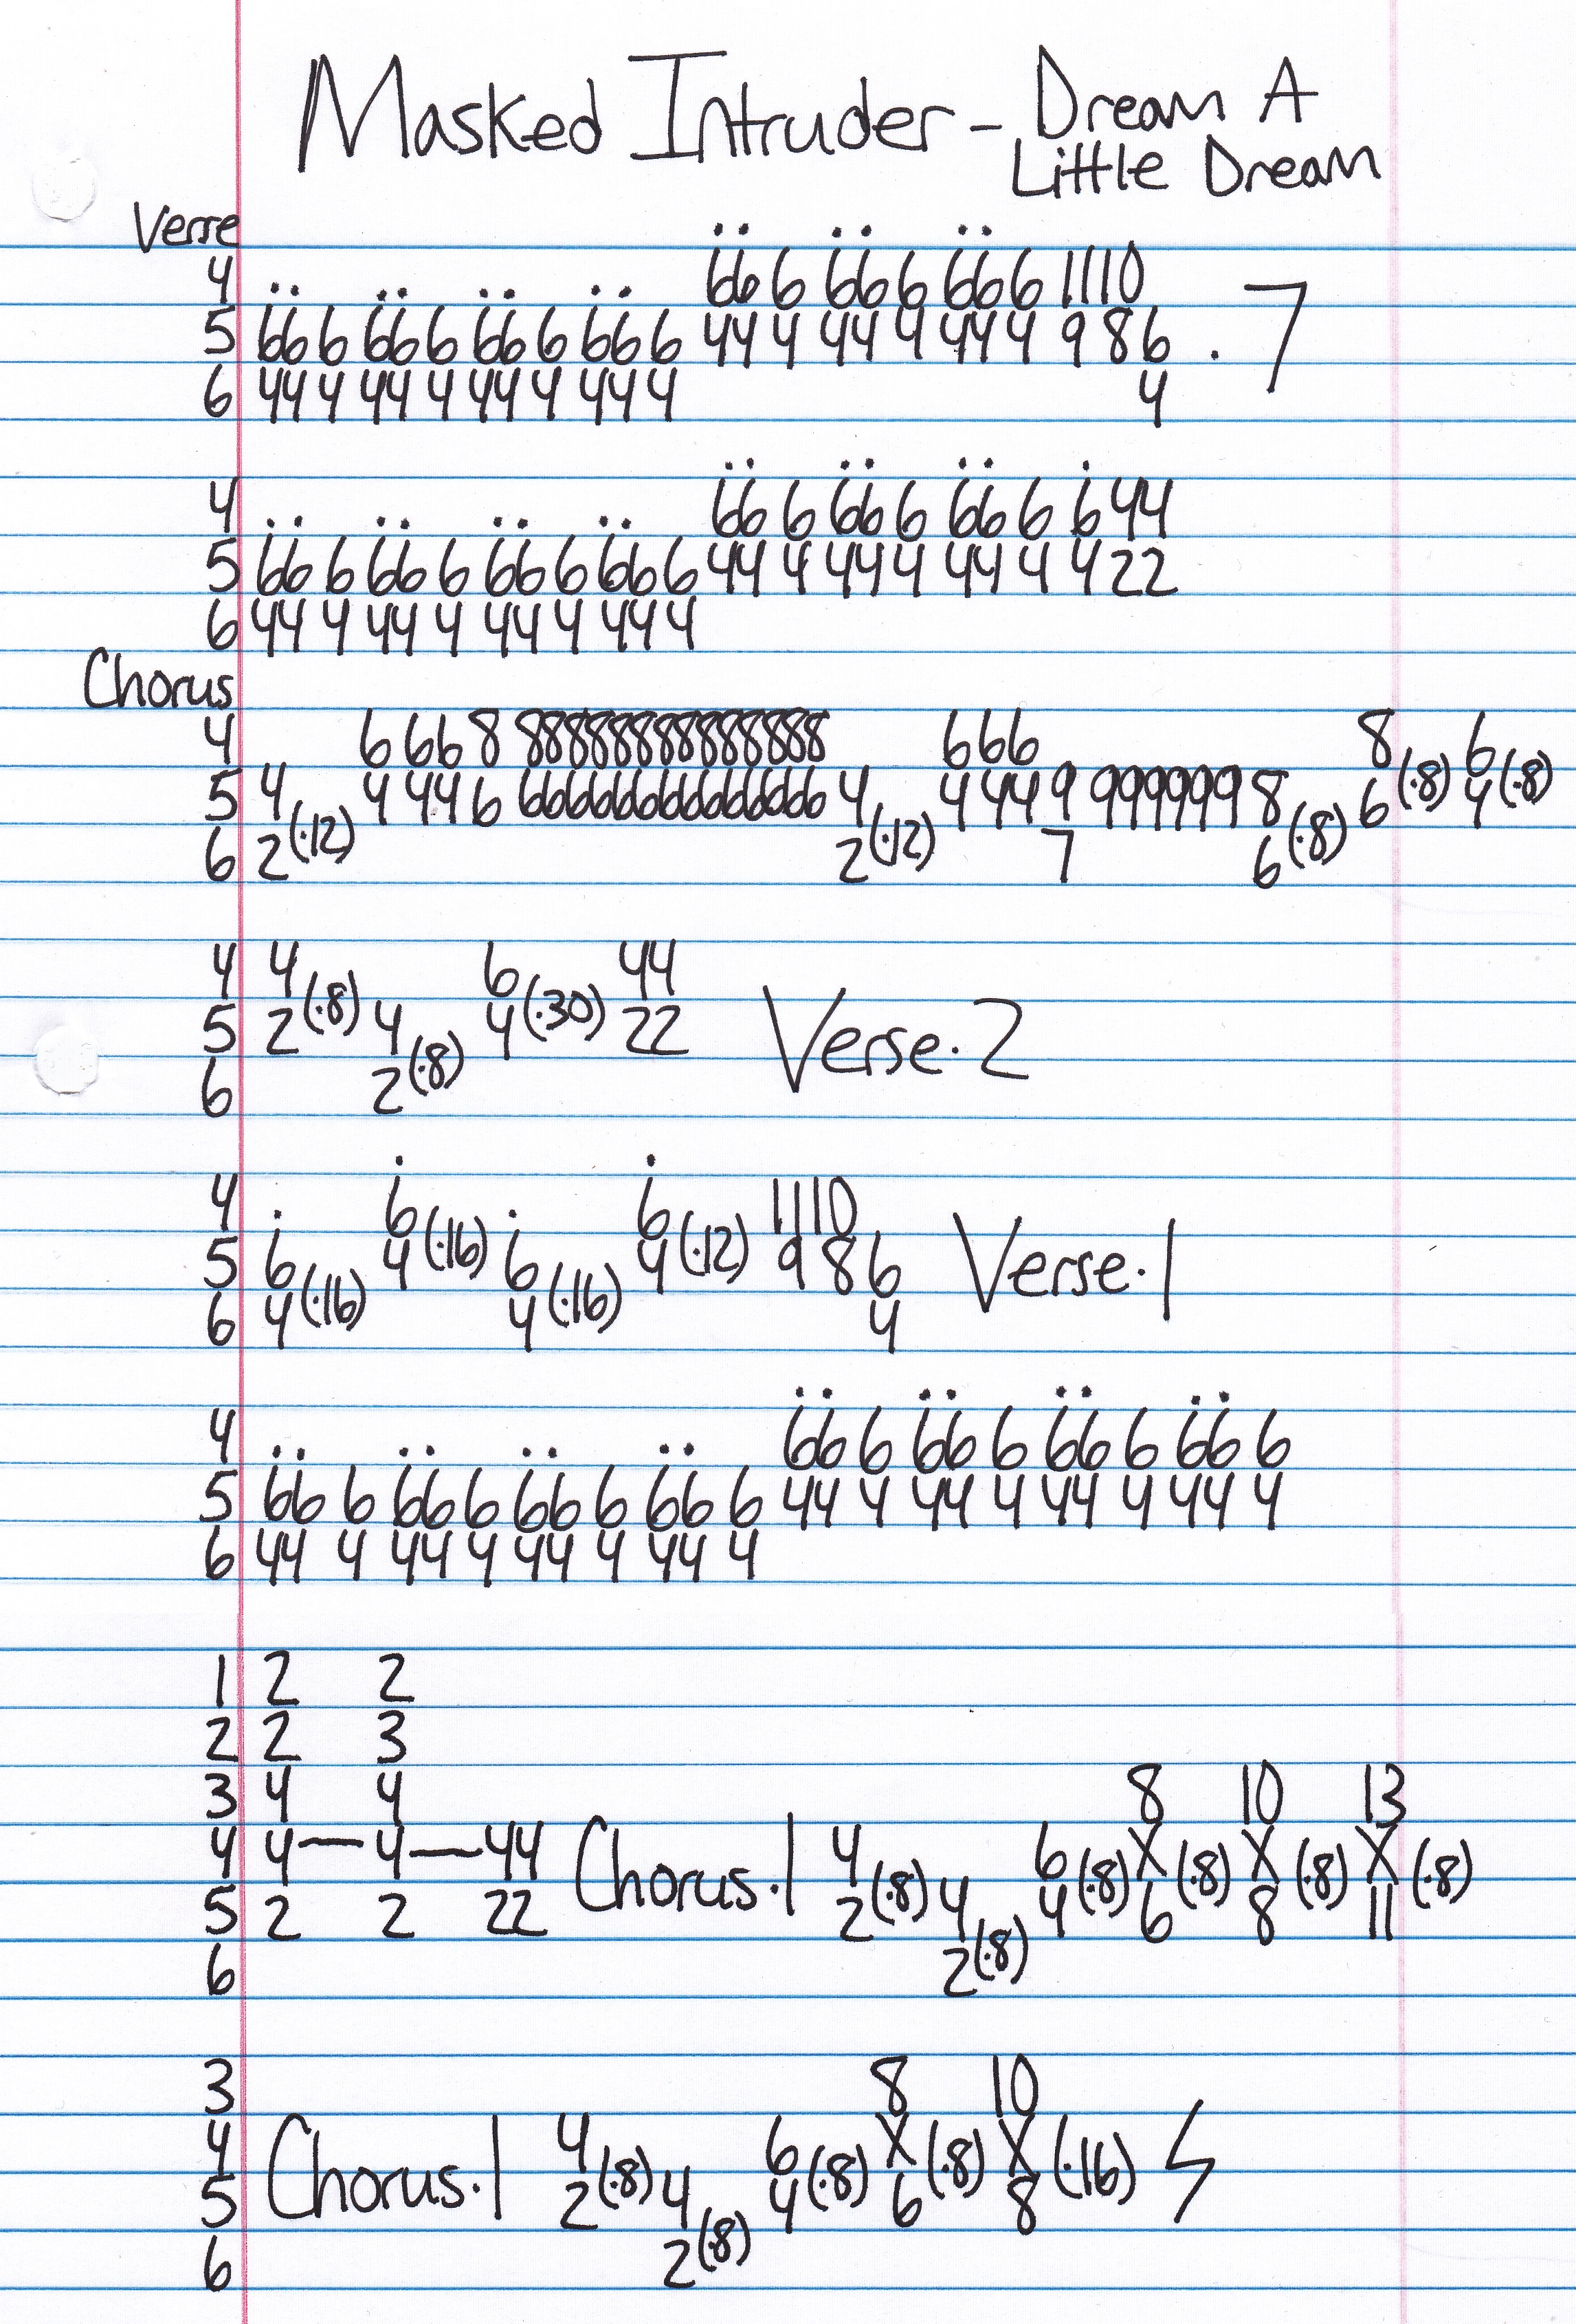 Masked Intruder - Dream A
Little Dream
Verse
4 66 6 66 6 66 6 11 10
5 66 6 66 6 66 6 66 6 44 4 44 4 44 4 9 8 6 . 7
6 44 4 44 4 44 4 44 4 4
4 66 6 66 6 66 6 6 44
5 66 6 66 6 66 6 66 6 44 4 44 4 44 4 4 22
6 44 4 44 4 44 4 44 4
Chorus
4 6 66 8 88888888888888 666 8 6
5 4 4 44 6 66666666666666 4 444 9 9999999 8 6(.8) 4(.8)
6 2(.12) 2(.12) 7 6(.8)
4 4 6 44
5 2(.8) 4 4(.30) 22 Verse.2
6 2(.8)
4 6 6 11 10
5 6 4(.16) 6 4(.12) 9 8 6 Verse.1
6 4(.16) 4(.16) 4
4 66 6 66 6 66 6 66 6
5 66 6 66 6 66 6 66 6 44 4 44 4 44 4 44 4
6 44 4 44 4 44 4 44 4
1 2 2
2 2 3
3 4 4 8 10 13
4 4—4—44 Chorus.1 4 6 X X X
5 2 2 22 2(.8) 4 4(.8) 6(.8) 8(.8) 11(.8)
6 2(.8)
3 8 10
4 Chorus.1 4 6 X X
5 2(.8) 4 4(.8) 6(.8) 8(.16)
6 2(.8)